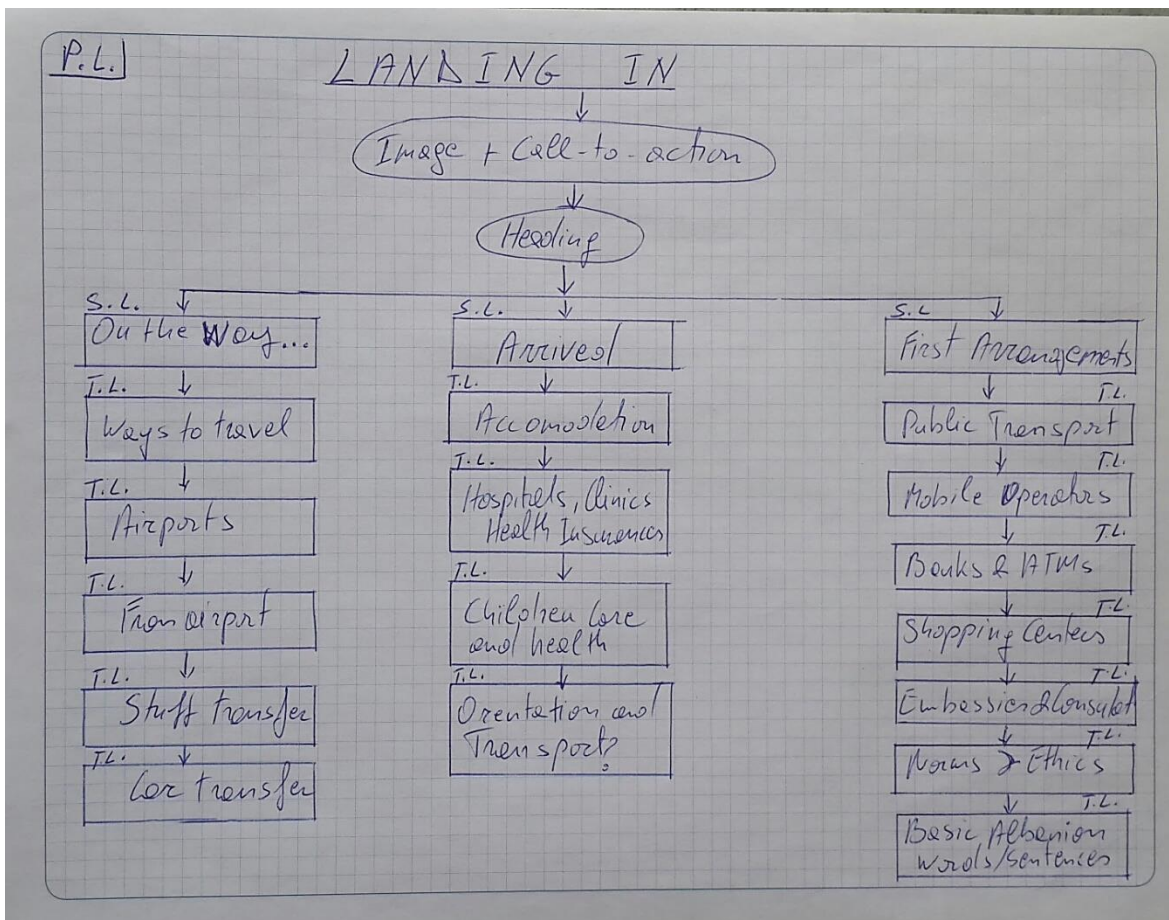 P.L.
LANDING IN
Image + Call-to-action
Heading
S.L.
On the Way...
T.L.
Ways to travel
T.L.
Airports
T.L.
From airport
T.L.
Stuff transfer
T.L.
Car transfer
S.L.
Arrived
T.L.
Accomodation
T.L.
Hospitals, Clinics
Health Insurances
T.L.
Children Care
and health
T.L.
Orentation and
Transport?
S.L
First Arrangements
T.L.
Public Transport
T.L.
Mobile Operators
T.L.
Banks & ATMs
T.L.
Shopping Centers
T.L.
Embassies & Consulat
T.L.
Norms & Ethics
T.L.
Basic Albanian
Words/Sentences